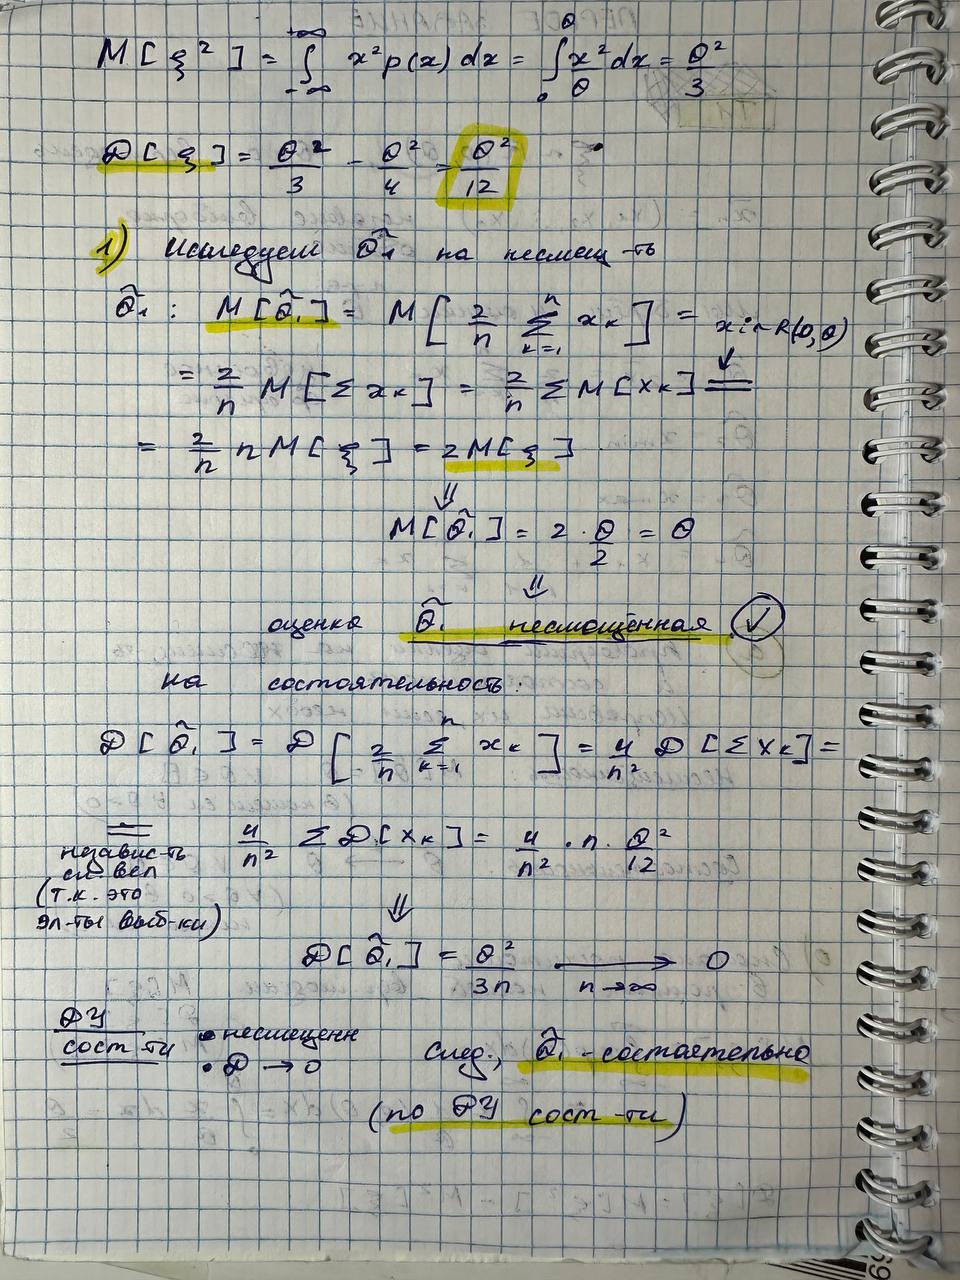 M[ξ²] = ∫_{-∞}^{+∞} x² p(x) dx = ∫_0^θ x²/θ dx = θ²/3
D[ξ] = θ²/3 - θ²/4 = θ²/12
1) Исследуем θ̃₁ на несмещ-ть
θ̃₁: M[θ̃₁] = M[2/n Σ_{k=1}^n x_k] = xi ~ R(0,θ)
= 2/n M[Σ x_k] = 2/n Σ M[x_k] =
= 2/n n M[ξ] = 2M[ξ]
⇓
M[θ̃₁] = 2 · θ/2 = θ
⇓
оценка θ̃₁ несмощённая ✓
на состоятельность:
D[θ̃₁] = D[2/n Σ_{k=1}^n x_k] = 4/n² D[Σ x_k] =
= 4/n² Σ D[x_k] = 4/n² · n · θ²/12
независ-ть
сл. вел
(т.к. это
эл-ты выб-ки)
⇓
D[θ̃₁] = θ²/3n → 0
n→∞
ДУ
сост-ти
• несмещенн
• D → 0
след., θ̃₁ - состоятельна
(по ДУ сост-ти)